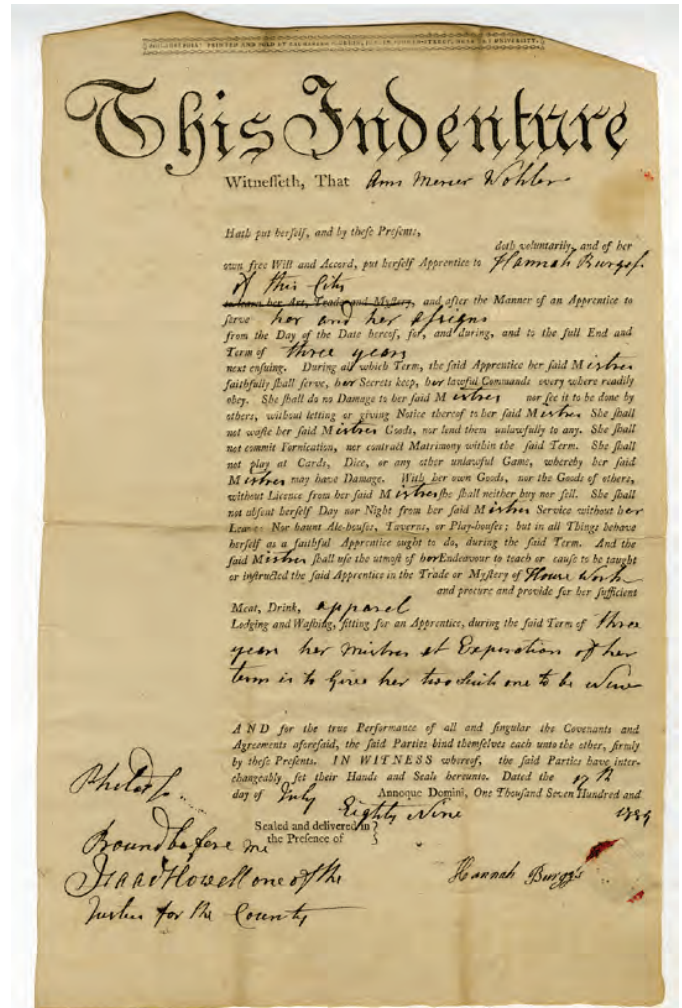 PHILADELPHIA: PRINTED AND SOLD BY
UNIVERSITY.
This Indenture
Witnesseth, That Ann Mercer Wohler
Hath put herself, and by these Presents,
doth voluntarily, and of her
own free Will and Accord, put herself Apprentice to Hannah Burgess
of this City
to learn her Art, Trade and Mystery, and after the Manner of an Apprentice to
serve her and her assigns
from the Day of the Date hereof, for, and during, and to the full End and
Term of three years
next ensuing. During all which Term, the said Apprentice her said Mistres
faithfully shall serve, her Secrets keep, her lawful Commands every where readily
obey. She shall do no Damage to her said Mistres nor see it to be done by
others, without letting or giving Notice thereof to her said Mistres She shall
not waste her said Mistres Goods, nor lend them unlawfully to any. She shall
not commit Fornication, nor contract Matrimony within the said Term. She shall
not play at Cards, Dice, or any other unlawful Game, whereby her said
Mistres may have Damage. With her own Goods, nor the Goods of others,
without Licence from her said Mistres she shall neither buy nor sell. She shall
not absent herself Day nor Night from her said Mistres Service without her
Leave: Nor haunt Ale-houses, Taverns, or Play-houses; but in all Things behave
herself as a faithful Apprentice ought to do, during the said Term. And the
said Mistres shall use the utmost of her Endeavour to teach or cause to be taught
or instructed the said Apprentice in the Trade or Mystery of House Work
and procure and provide for her sufficient
Meat, Drink, apparel
Lodging and Washing, fitting for an Apprentice, during the said Term of three
years her mistres at Experation of her
term is to Give her two suits one to be New
AND for the true Performance of all and singular the Covenants and
Agreements aforesaid, the said Parties bind themselves each unto the other, firmly
by these Presents. IN WITNESS whereof, the said Parties have inter-
changeably set their Hands and Seals hereunto. Dated the 17th
day of July Annoque Domini, One Thousand Seven Hundred and
Eighty Nine 1789
Sealed and delivered in
the Presence of
Bound before me
Isaac Howell one of the
Justices for the County
Hannah Burgss